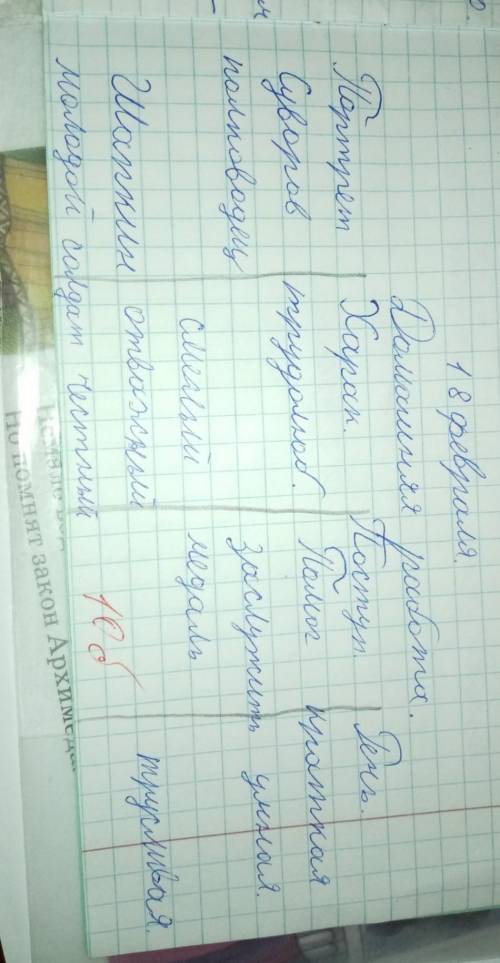 18 февраля.
Домашняя работа.
Портрет Харак. Поступ. Речь.
Суворов трудолюб. Помог краткая
полководец заслужить умная.
смелый медаль
Шапкин отважный трусливая.
молодой солдат честный
10б
Но помнят закон Архимеда